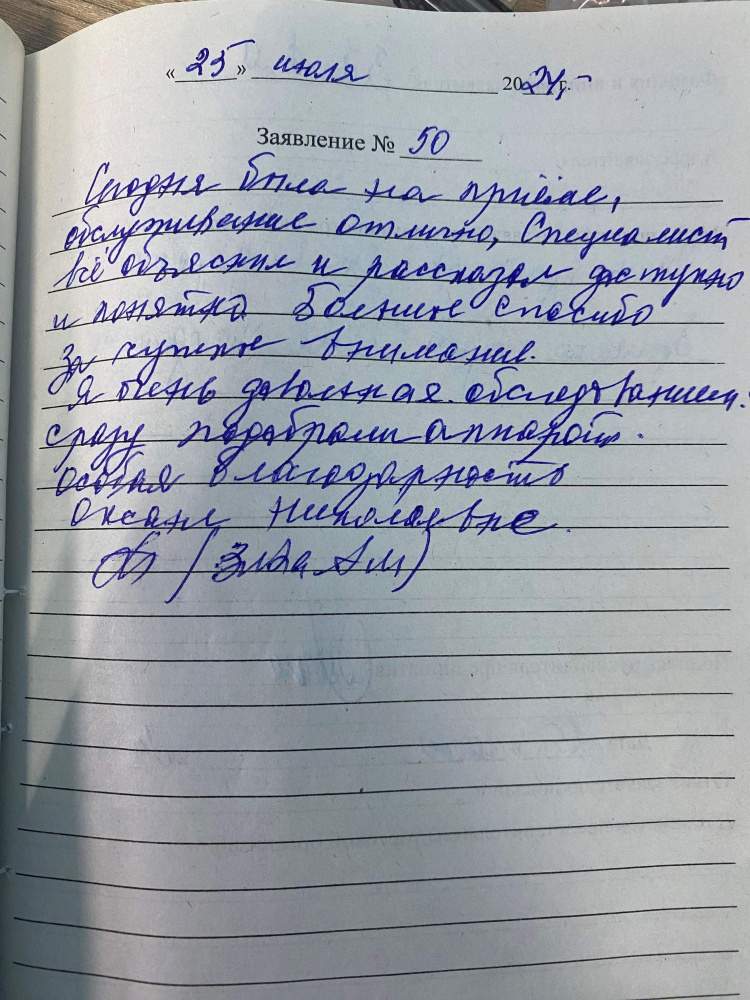 « 25 » июля 2024 г.
Заявление № 50
Сегодня была на приёме,
обслуживание отлично, Специалист
всё объяснил и рассказал доступно
и понятно. Большие спасибо
за чуткие внимание.
Я очень довольная обследованием.
сразу подобрали аппараты.
особая благодарность
Оксане Николаевне.